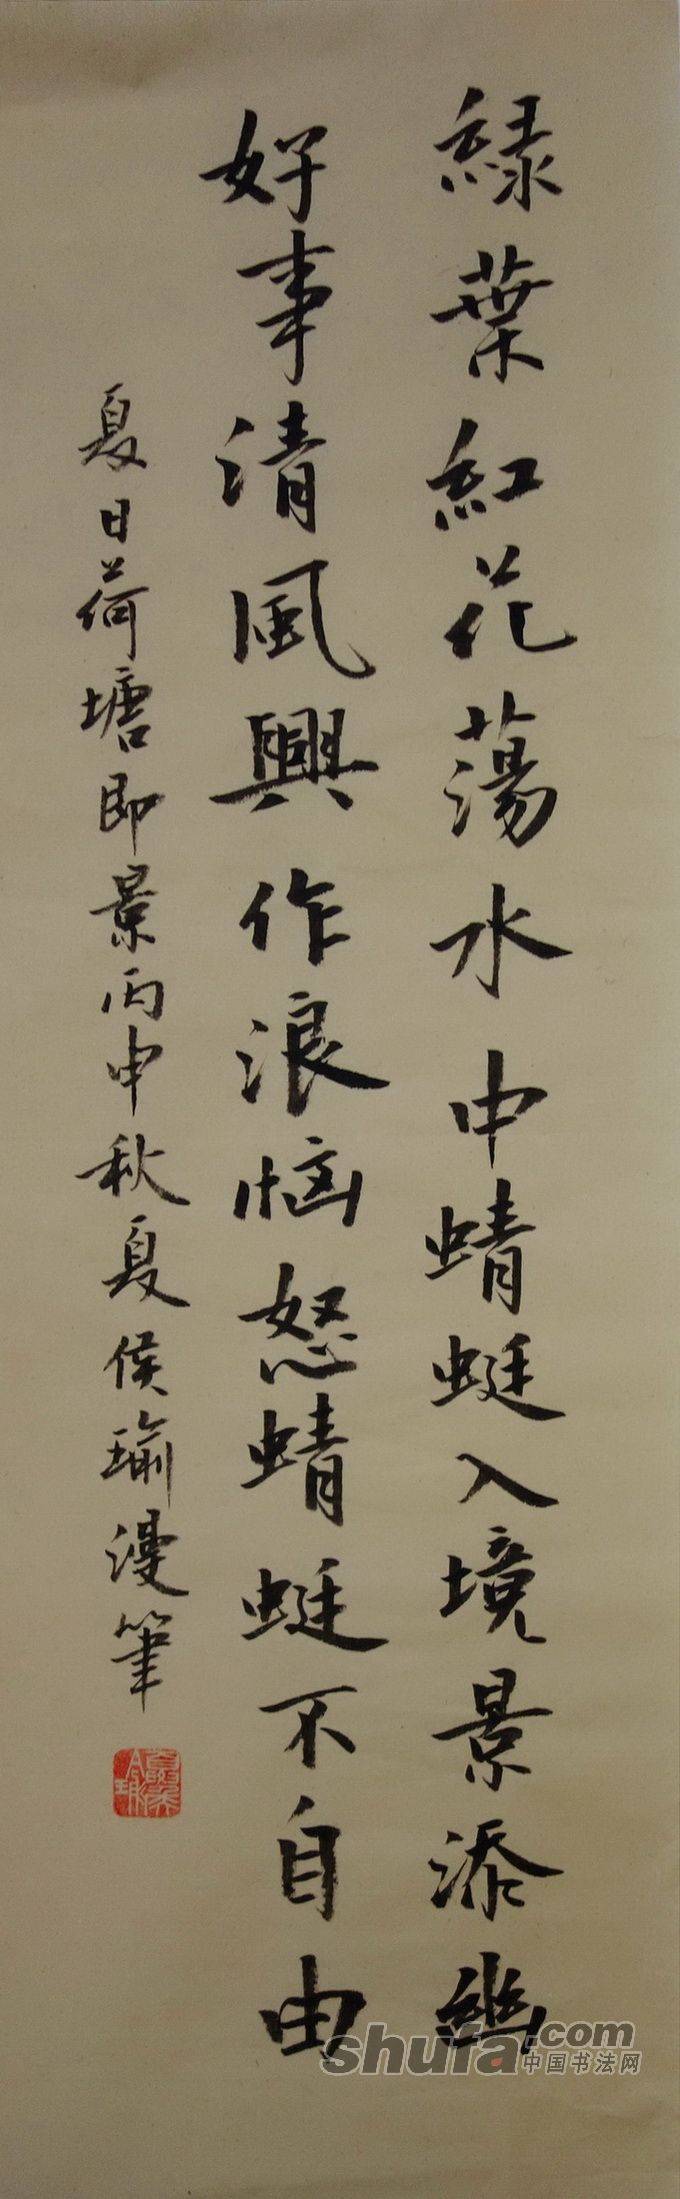 綠葉紅花蕩水中蜻蜓入境景添幽
好事清風興作浪惱怒蜻蜓不自由
夏日荷塘即景丙申秋夏侯瑜漫筆
shufa.com
中国书法网